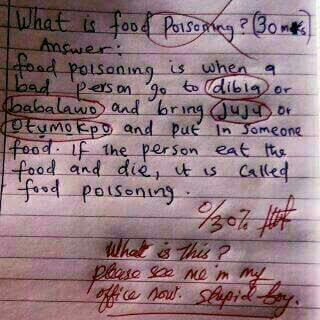 What is food Poisoning? (30 mks)
Answer:
food poisoning is when a
bad person go to dibia or
babalawo and bring juju or
Otumokpo and put in someone
food. if the person eat the
food and die, it is called
food poisoning.
0/30%
What is this?
please see me in my
office now. stupid boy.